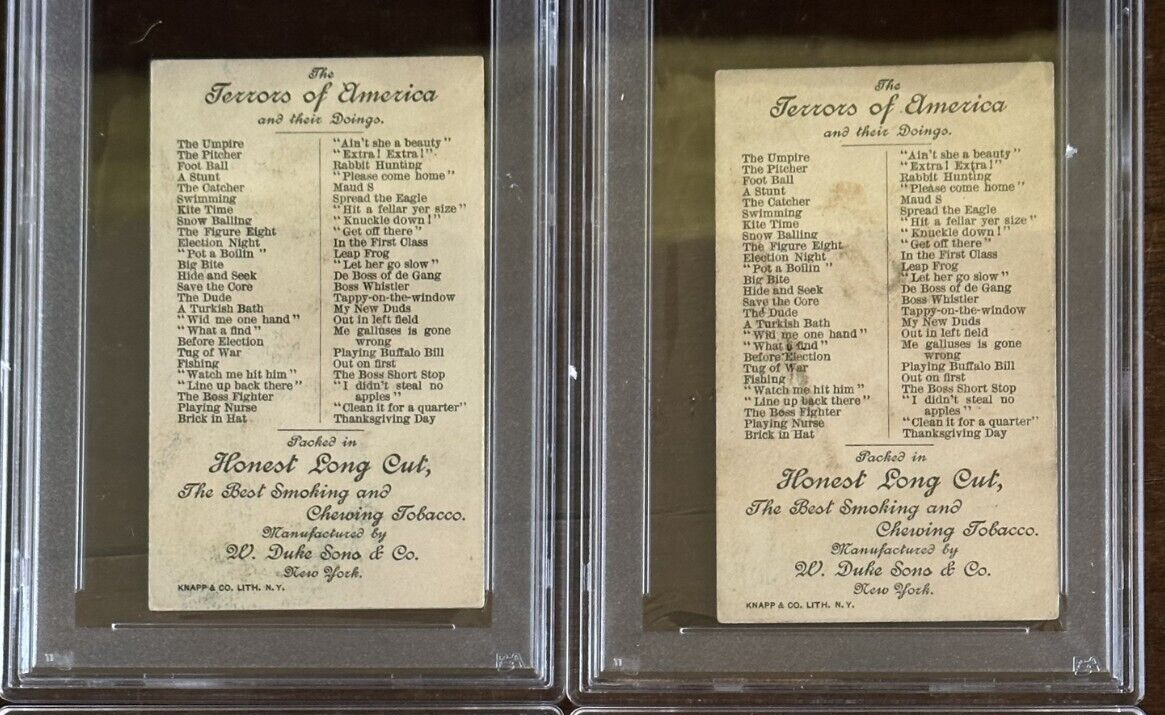 The
Terrors of America
and their Doings.
The Umpire
The Pitcher
Foot Ball
A Stunt
The Catcher
Swimming
Kite Time
Snow Balling
The Figure Eight
Election Night
"Pot a Boilin"
Big Bite
Hide and Seek
Save the Core
The Dude
A Turkish Bath
"Wid me one hand"
"What a find"
Before Election
Tug of War
Fishing
"Watch me hit him"
"Line up back there"
The Boss Fighter
Playing Nurse
Brick in Hat
"Ain't she a beauty"
"Extra! Extra!"
Rabbit Hunting
"Please come home"
Maud S
Spread the Eagle
"Hit a fellar yer size"
"Knuckle down!"
"Get off there"
In the First Class
Leap Frog
"Let her go slow"
De Boss of de Gang
Boss Whistler
Tappy-on-the-window
My New Duds
Out in left field
Me galluses is gone
wrong
Playing Buffalo Bill
Out on first
The Boss Short Stop
"I didn't steal no
apples"
"Clean it for a quarter"
Thanksgiving Day
Packed in
Honest Long Cut,
The Best Smoking and
Chewing Tobacco.
Manufactured by
W. Duke Sons & Co.
New York.
KNAPP & CO. LITH. N.Y.
The
Terrors of America
and their Doings.
The Umpire
The Pitcher
Foot Ball
A Stunt
The Catcher
Swimming
Kite Time
Snow Balling
The Figure Eight
Election Night
"Pot a Boilin"
Big Bite
Hide and Seek
Save the Core
The Dude
A Turkish Bath
"Wid me one hand"
"What a find"
Before Election
Tug of War
Fishing
"Watch me hit him"
"Line up back there"
The Boss Fighter
Playing Nurse
Brick in Hat
"Ain't she a beauty"
"Extra! Extra!"
Rabbit Hunting
"Please come home"
Maud S
Spread the Eagle
"Hit a fellar yer size"
"Knuckle down!"
"Get off there"
In the First Class
Leap Frog
"Let her go slow"
De Boss of de Gang
Boss Whistler
Tappy-on-the-window
My New Duds
Out in left field
Me galluses is gone
wrong
Playing Buffalo Bill
Out on first
The Boss Short Stop
"I didn't steal no
apples"
"Clean it for a quarter"
Thanksgiving Day
Packed in
Honest Long Cut,
The Best Smoking and
Chewing Tobacco.
Manufactured by
W. Duke Sons & Co.
New York.
KNAPP & CO. LITH. N.Y.